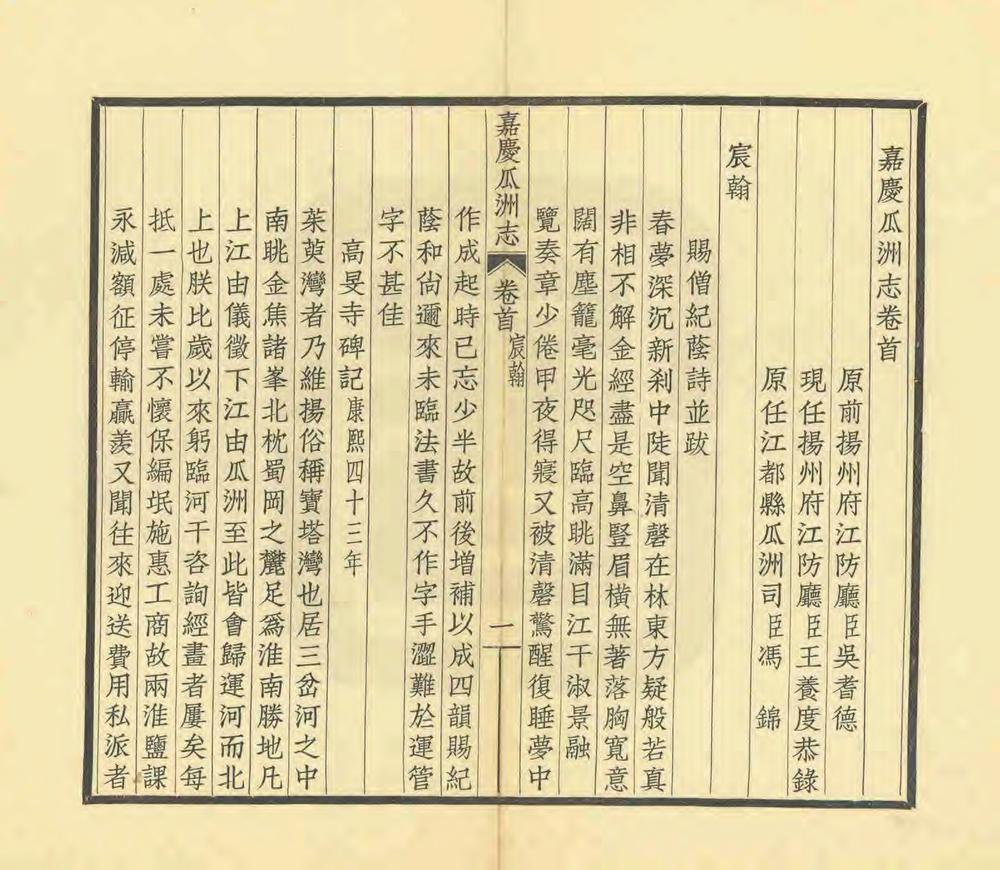 嘉慶瓜洲志卷首
原前揚州府江防廳臣吳耆德
現任揚州府江防廳臣王養度恭錄
原任江都縣瓜洲司臣馮　錦
宸翰
賜僧紀蔭詩並跋
春夢深沉新刹中陡聞清磬在林東方疑般若真
非相不解金經盡是空鼻豎眉橫無著落胸寬意
闊有塵籠毫光咫尺臨高眺滿目江干淑景融
覽奏章少倦甲夜得寢又被清磬驚醒復睡夢中
嘉慶瓜洲志 卷首 宸翰 一
作成起時已忘少半故前後增補以成四韻賜紀
蔭和尙邇來未臨法書久不作字手澀難於運管
字不甚佳
高旻寺碑記康熙四十三年
茱萸灣者乃維揚俗稱寶塔灣也居三岔河之中
南眺金焦諸峯北枕蜀岡之麓足爲淮南勝地凡
上江由儀徵下江由瓜洲至此皆會歸運河而北
上也朕比歲以來躬臨河干咨詢經畫者屢矣每
抵一處未嘗不懷保編氓施惠工商故兩淮鹽課
永減額征停輸羸羨又聞往來迎送費用私派者